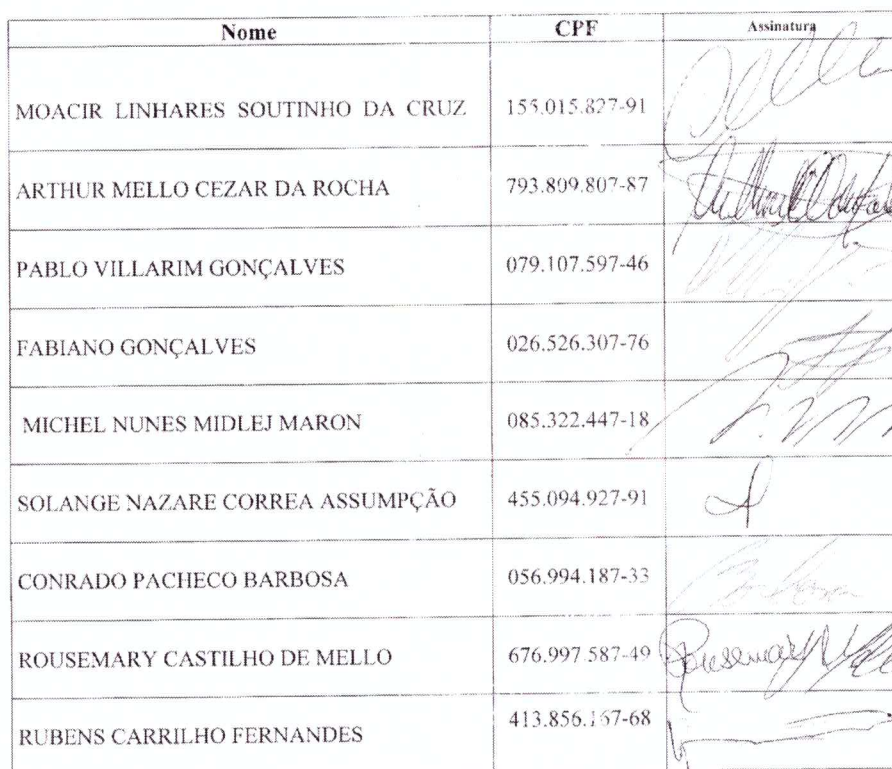 Nome CPF Assinatura
MOACIR LINHARES SOUTINHO DA CRUZ 155.015.827-91
ARTHUR MELLO CEZAR DA ROCHA 793.809.807-87
PABLO VILLARIM GONÇALVES 079.107.597-46
FABIANO GONÇALVES 026.526.307-76
MICHEL NUNES MIDLEJ MARON 085.322.447-18
SOLANGE NAZARE CORREA ASSUMPÇÃO 455.094.927-91
CONRADO PACHECO BARBOSA 056.994.187-33
ROUSEMARY CASTILHO DE MELLO 676.997.587-49 Rousemary
RUBENS CARRILHO FERNANDES 413.856.167-68